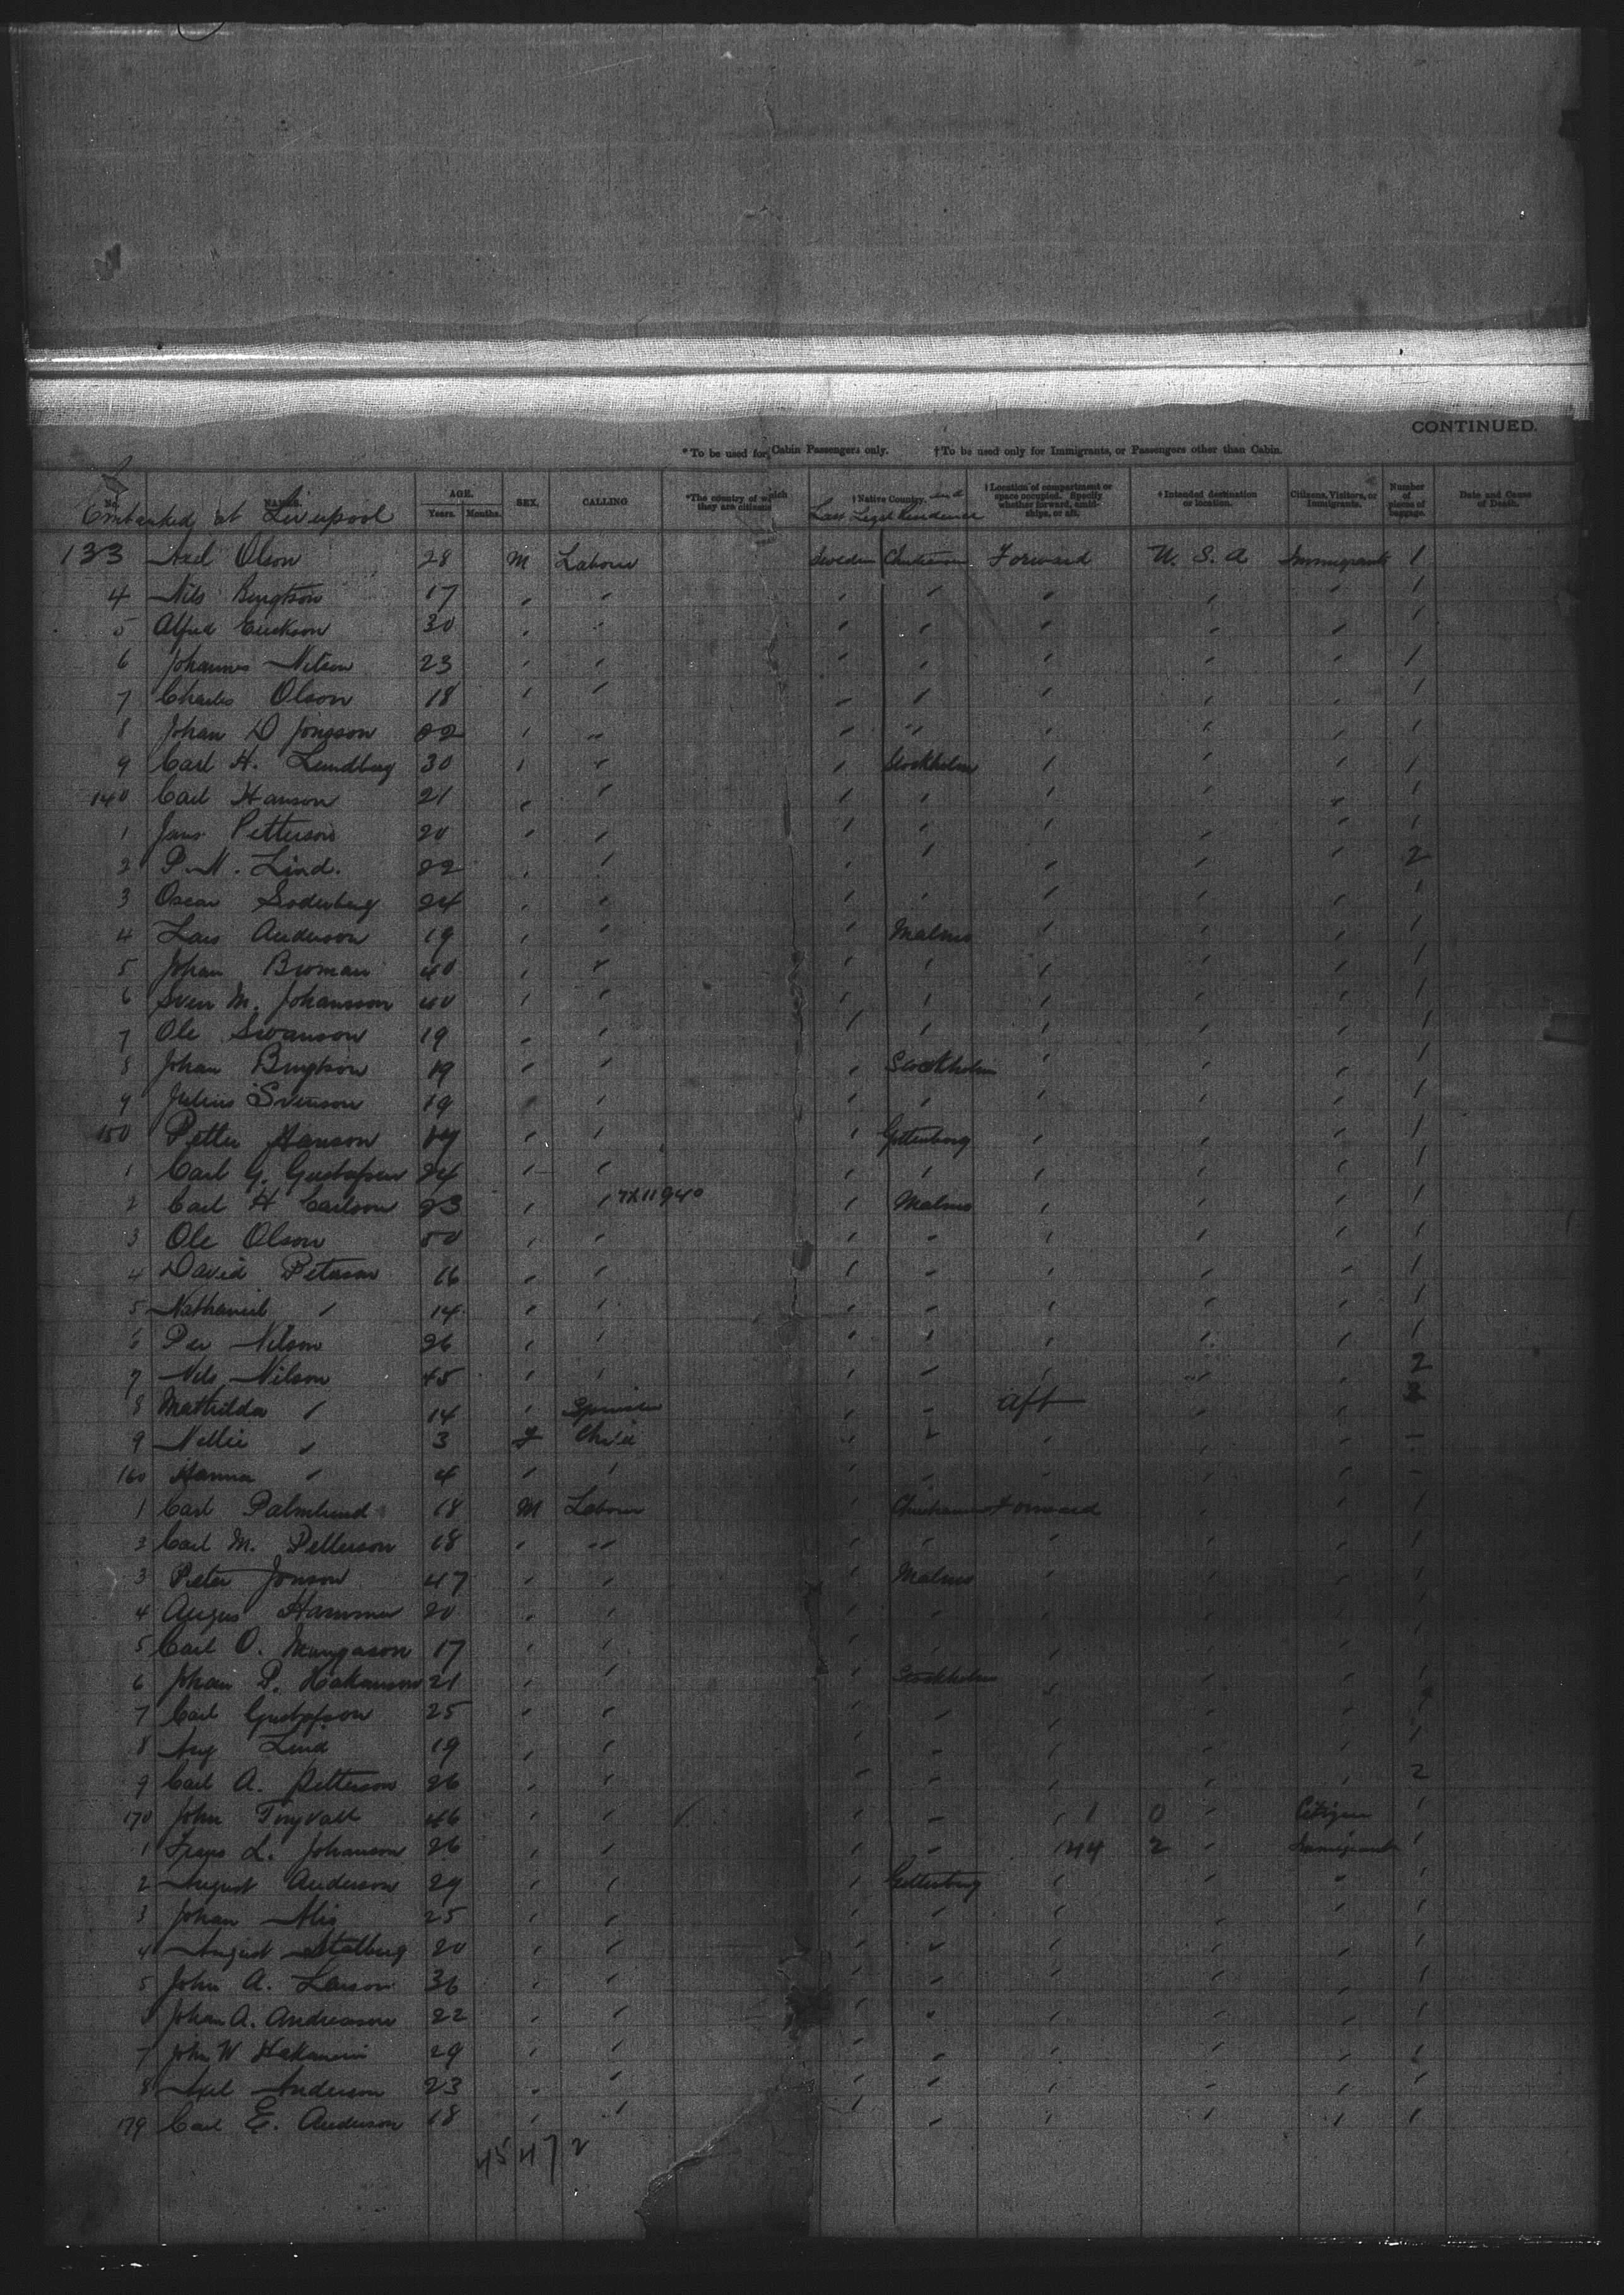 CONTINUED.
*To be used for Cabin Passengers only. †To be used only for Immigrants, or Passengers other than Cabin.
No. NAMES. AGE. Years. Months. SEX. CALLING *The country of which they are citizens †Native Country, and Last Legal Residence †Location of compartment or space occupied. Specify whether forward, amidships, or aft. †Intended destination or location. Citizens, Visitors, or Immigrants. Number of pieces of baggage. Date and Cause of Death.
Embarked at Liverpool
133 Axel Olson 28 M Labour Sweden Forward U. S. A Immigrants 1
4 Nils Bengtson 17 1
5 Alfred Erickson 30 1
6 Johannes Nilson 23 1
7 Charles Olson 18 1
8 Johan D Jonsson 22 1
9 Carl H. Lundberg 30 Stockholm 1
140 Carl Hanson 21 1
1 Jans Petterson 20 1
2 P. N. Lind. 22 2
3 Oscar Soderberg 24 1
4 Lars Anderson 19 Malmo 1
5 Johan Broman 40 1
6 Sven M. Johansson 40 1
7 Ole Swanson 19 1
8 Johan Bengtson 19 Stockholm 1
9 Julius Svenson 19 1
150 Petter Hanson Gottenborg 1
1 Carl G. Gustafson 24 1
2 Carl H Carlson 23 Malmo 1
3 Ole Olson 50 1
4 David Peterson 16 1
5 Nathaniel " 14 1
6 Per Nilson 26 1
7 Nils Nilson 45 2
8 Mathilda " 14 Spinster aft
9 Nellie " 3 F Child –
160 Hanna " 4 –
1 Carl Palmlund 18 M Labour Forward 1
2 Carl M. Petterson 18 1
3 Peter Jonson 47 Malmo 1
4 Hammer 20 1
5 Carl O. 17 1
6 Johan P. Hakanson 21 Stockholm 1
7 Carl Gustafson 25 1
8 Aug Lind 19 1
9 Carl A. Petterson 26 2
170 John 46 1 0 Citizen 1
1 Frans L. Johanson 26 44 2 Immigrants 1
2 August Anderson 29 Gottenborg 1
3 Johan 25 1
4 August 20 1
5 John A. Larson 36 1
Johan A. Andreason 22 1
7 John W Hakanson 29 1
8 Axel Anderson 23 1
179 Carl E. Anderson 18 1
45 47 2